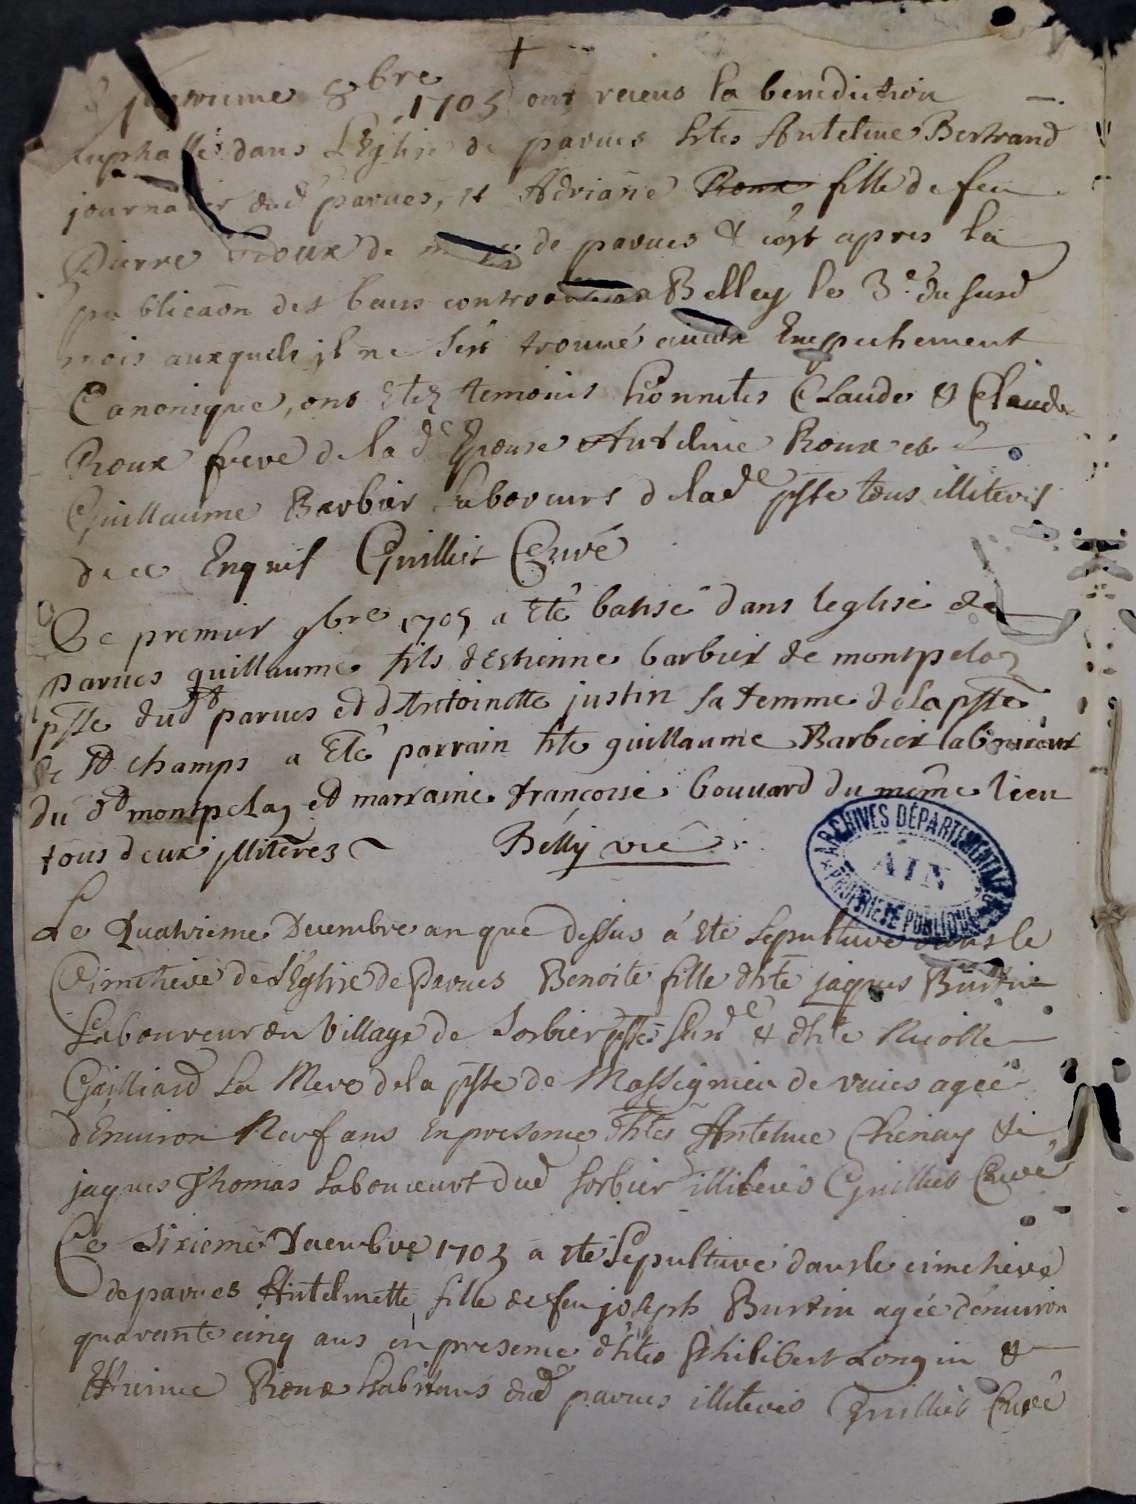 8bre 1705 ont receus la benediction
nuptialle dans L'Eglise de parves htes Antelme Bertrand
journalier dud parves, et Adrianne Roux fille de feu
pierre Roux de de parves & c'est apres la
publicaon des bans Belley le 3e du susd
mois auxquels il ne s'est trouvé aucun Empechement
Canonique, ont Etez temoins honnetes Claude & Claude
Roux frere de la de Epouse Antelme Roux et
Guillaume Barbier Laboreurs de lade psse tous illiteres
de ce Enquis Guillet Curé
Le premier 9bre 1705 a eté batisé dans leglise de
parves guillaume fils d'Estienne barbier de montpelaz
psse dud parves et d'Antoinette justin sa femme de la psse
de St champs a Eté parrain hte guillaume Barbier laboureur
du dt montpelaz et marraine francoise bouvard du même lieu
tous deux illiterez Belly vic
Le Quatrieme Decembre an que dessus á Ete Sepulturé dans le
Cimetiere de l'Eglise de Parves Benoite fille d'hte jaques Burtin
Laboureur du Village de Sorbier psse susd & d'hte Nicolle
Gailliard La Mere de la psse de Massignieu de rives agée
d'Environ Neuf ans En presence d'htes Antelme Chenay &
jaques Thomas Laboureurs dud sorbier illiterés Guillet Curé
Ce Sixieme Decembre 1705 a ete Sepulturé dans le cimetiere
de parves Antelmette fille de feu joseph Burtin agée d'environ
quarante cinq ans en presence d'htes Philibert Longin &
Roux habitans dud parves illiterés Guillet Curé
ARCHIVES DÉPARTEMENTALES
AIN
PROPRIÉTÉ PUBLIQUE